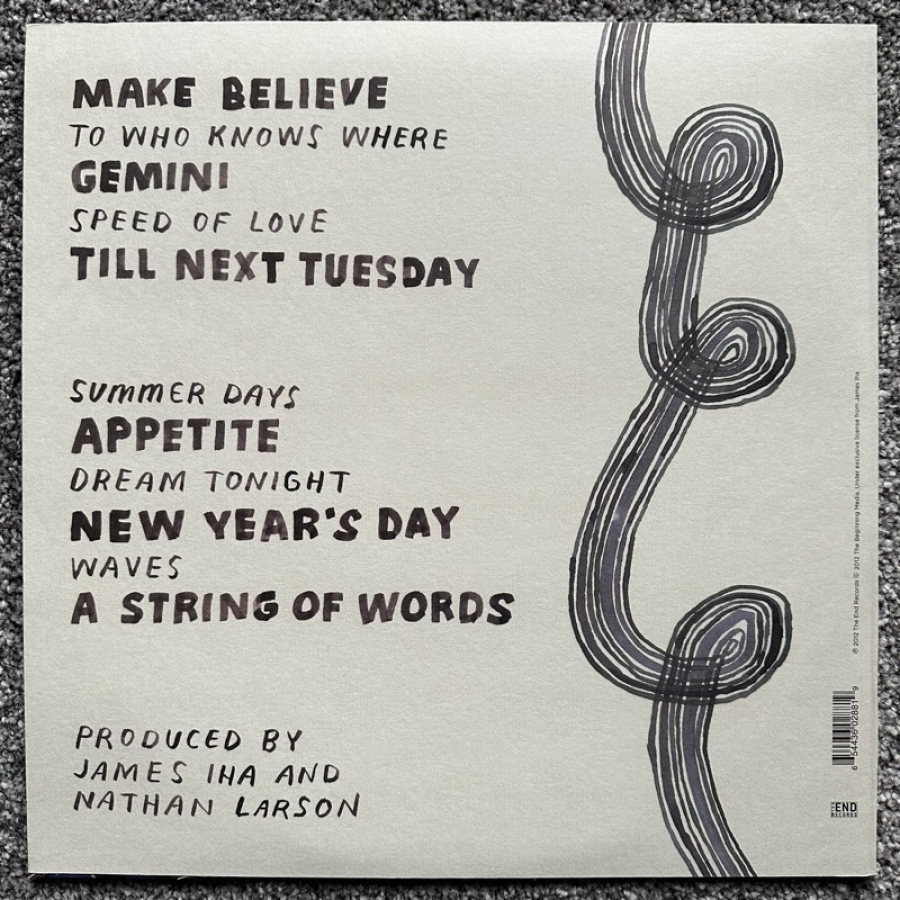 MAKE BELIEVE
TO WHO KNOWS WHERE
GEMINI
SPEED OF LOVE
TILL NEXT TUESDAY
SUMMER DAYS
APPETITE
DREAM TONIGHT
NEW YEAR'S DAY
WAVES
A STRING OF WORDS
PRODUCED BY
JAMES IHA AND
NATHAN LARSON
℗ 2012 The End Records © 2012 The Beginning Media. Under exclusive license from James Iha
6 54436 02881 9
THE END
RECORDS